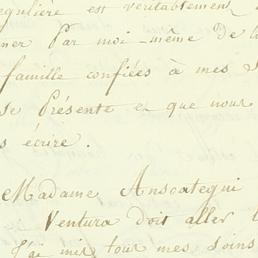 égulière est véritablement
ner par moi-même de l
famille confiées à mes S
se présente et que nous
s écrire.
Madame Anscategui
Ventura doit aller l
J'ai mis tous mes soins